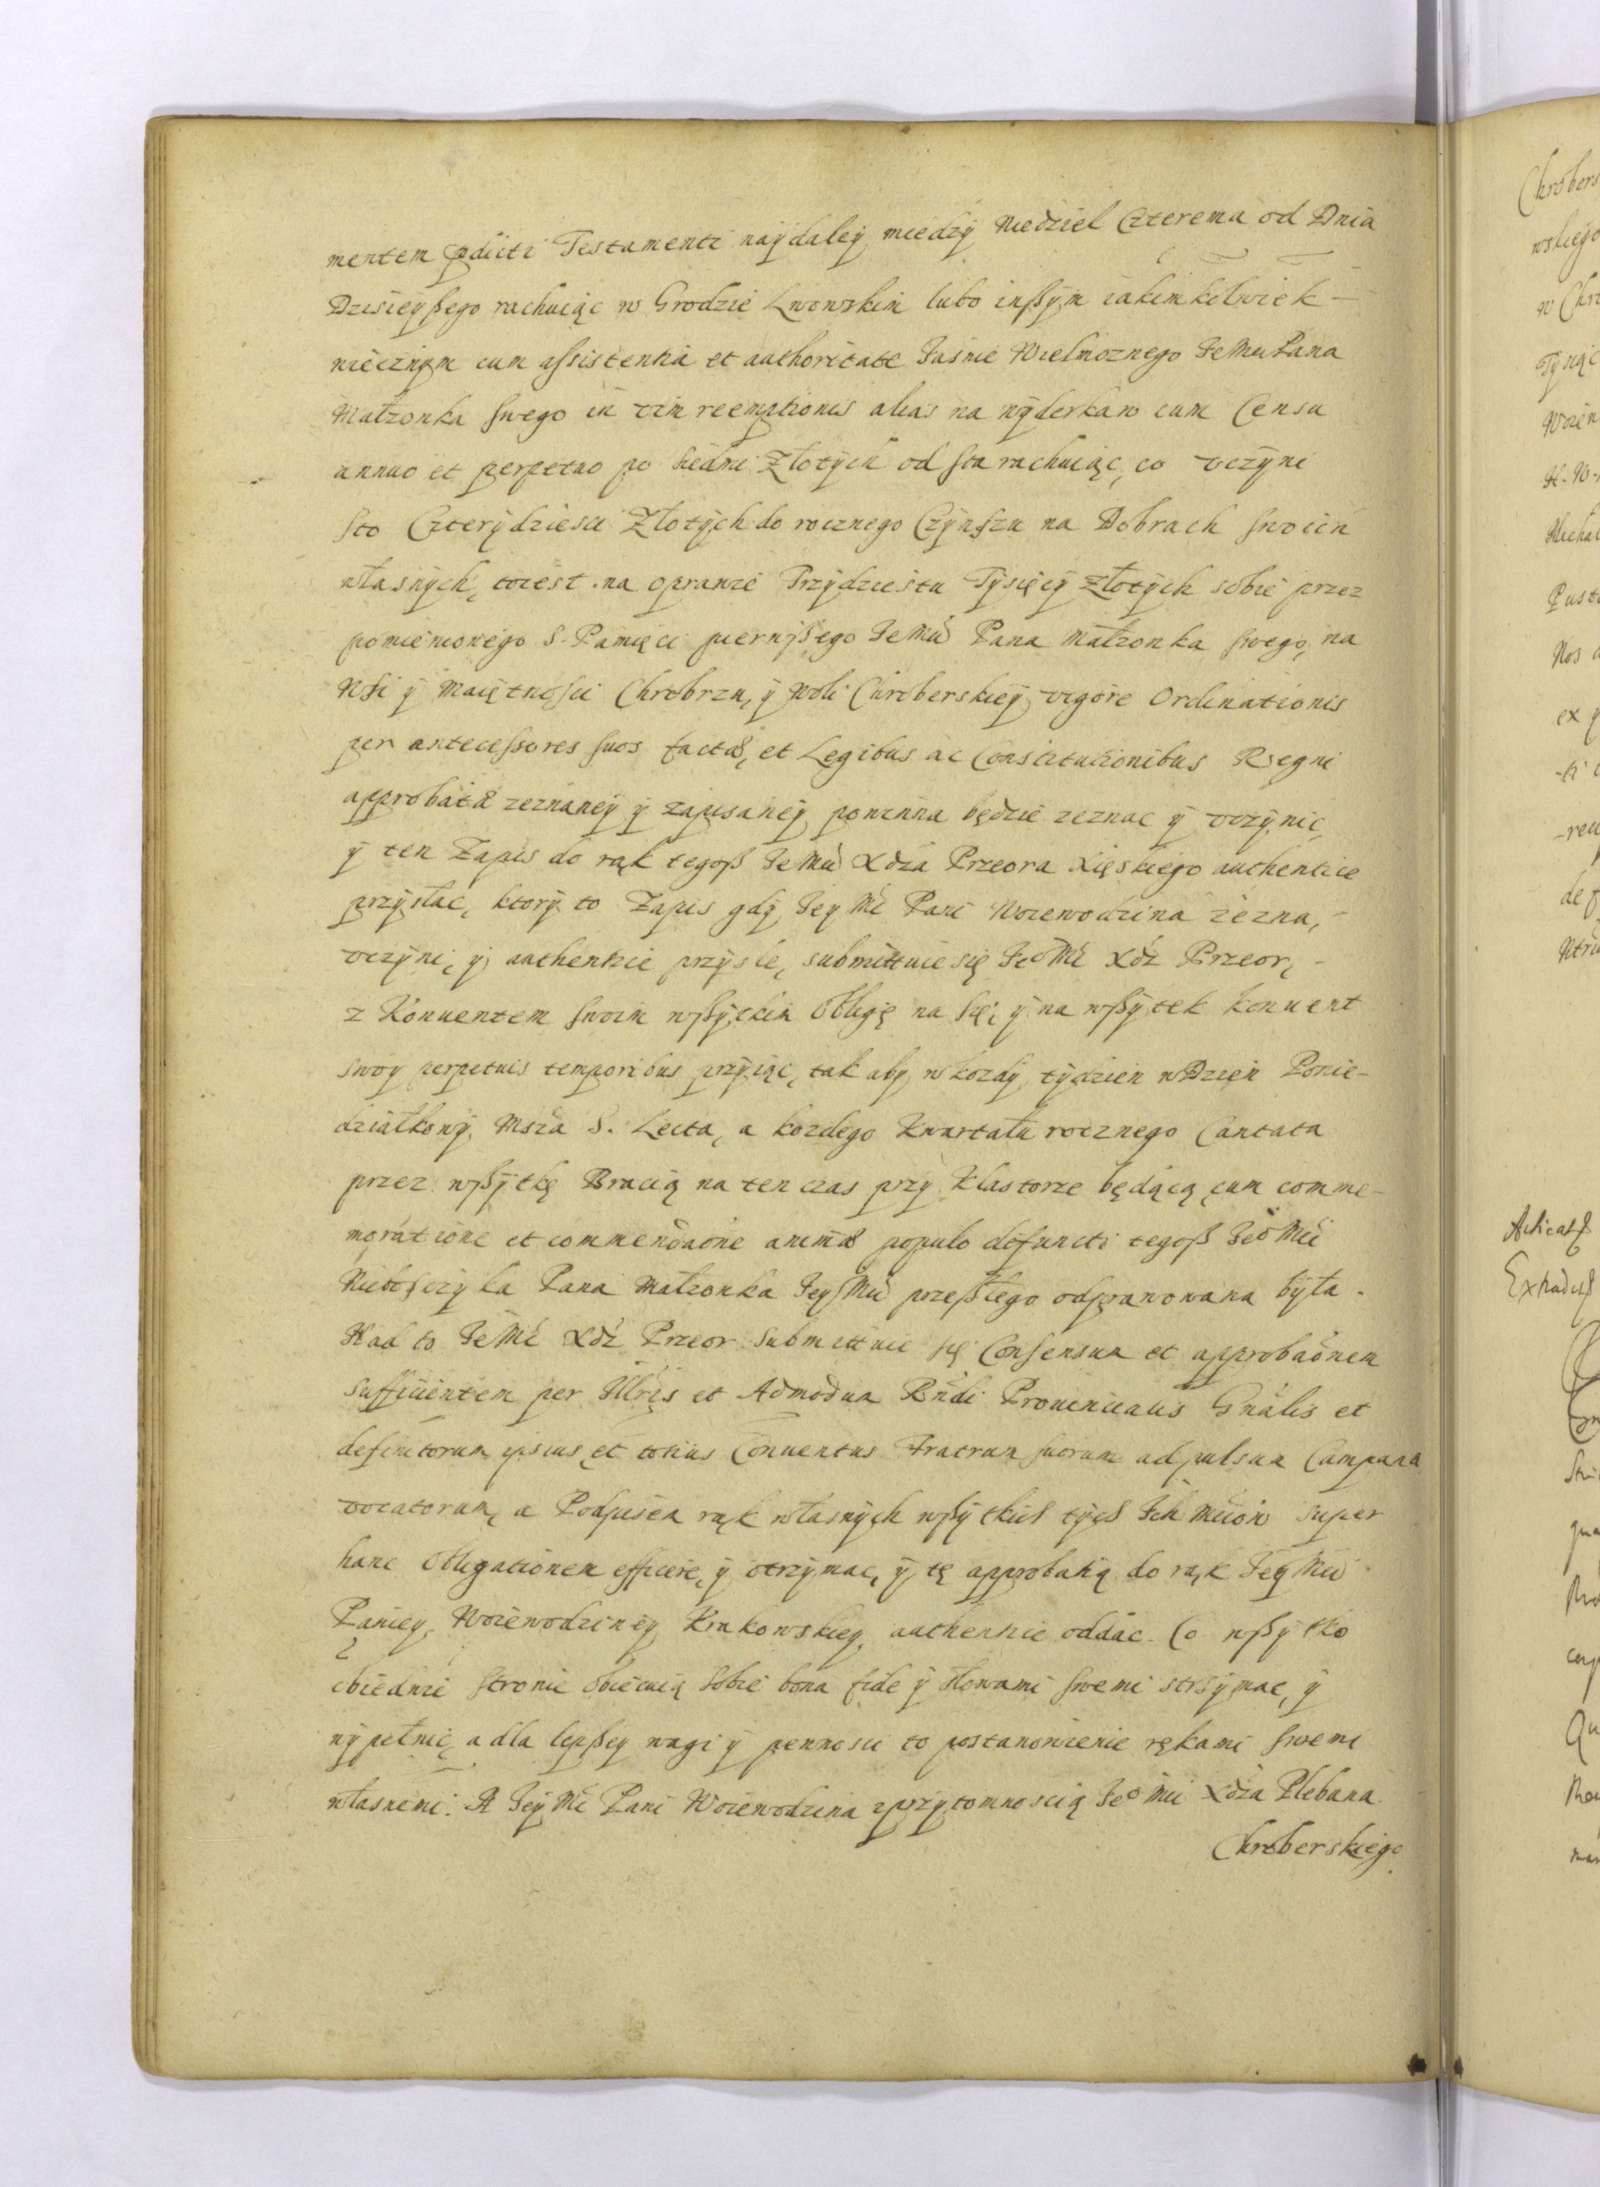 mentem pdicti Testamenti naydaley między Niedziel Czterema od Dnia
Dzisieyßego rachuiąc w Grodzie Lwowskim lubo inßym iakimkolwiek
wiecznym cum assistentia et authoritate Jaśnie Wielmoznego Je Mci Pana
Małzonka swego in vim reemptionis alias na wyderkaw cum Censu
annuo et perpetuo po siedm Złotych od sta rachuiąc, co vczyni
sto Czterydziesci Złotych do rocznego Czynszu na Dobrach swoich
własnych, toiest na oprawie Trzydziestu Tysięcy złotych sobie przez
pomienionego S. Pamięci pierwßego Je Mci Pana Małzonka swego, na
Wsi y Maiętnosci Chrobrzu, y Woli Chroberskiey vigore Ordinationis
per antecessores suos factæ, et Legibus ac Constitutionibus Regni
approbatæ zeznaney y zapisaney powinna będzie zeznac y vczynic,
y ten Zapis do rąk tegoß Je Mci Xdza Przeora Xięskiego authentice
przysłac, ktory to Zapis gdy Jey Mć Pani Woiewodzina zezna,
vczyni, y authentice przysle, submittuie się Jeo Mć Xdz Przeor,
z Konuentem swoim wßytkim Obligę na się, y na wßytek konuent
swoy perpetuis temporibus przyiąc, tak aby w kozdy tydzien w Dzień Ponie-
działkowy Msza S. Lecta, a kozdego Kwartału rocznego Cantata
przez wßytkę Bracią na ten czas przy Klastorze będącą cum comme-
moratione et commendaone animæ populo defuncti tegoß Jeo Mci
Nieboszczyka Pana Małzonka Jey Mci przeßłego odprawowana była.
Nad to Je Mć Xdz Przeor submittuie się Consensum et approbaonem
sufficientem per Illres et Admodum Rndi Prouincialis Gnalis et
definitorum ipsius, et totius Conuentus Fratrum suorum ad pulsum Campanæ
vocatorum, a Podpisem rąk własnych wßytkich tych Ich Mciow super
hanc Obligationem efficere, y otrzymac, y tę approbatią do rąk Jey Mci
Paniey Woiewodziney Krakowskiey authentice oddac. Co wßytko
obiedwie stronie obiecuią sobie bona fide y słowami swemi strzymac, y
wypełnic, a dla lepßey wagi y pewnosci to postanowienie rękami swemi
własnemi. A Jey Mć Pani Woiewodzina z przytomnoscią Jeo Mci Xdza Plebana
Chroberskiego